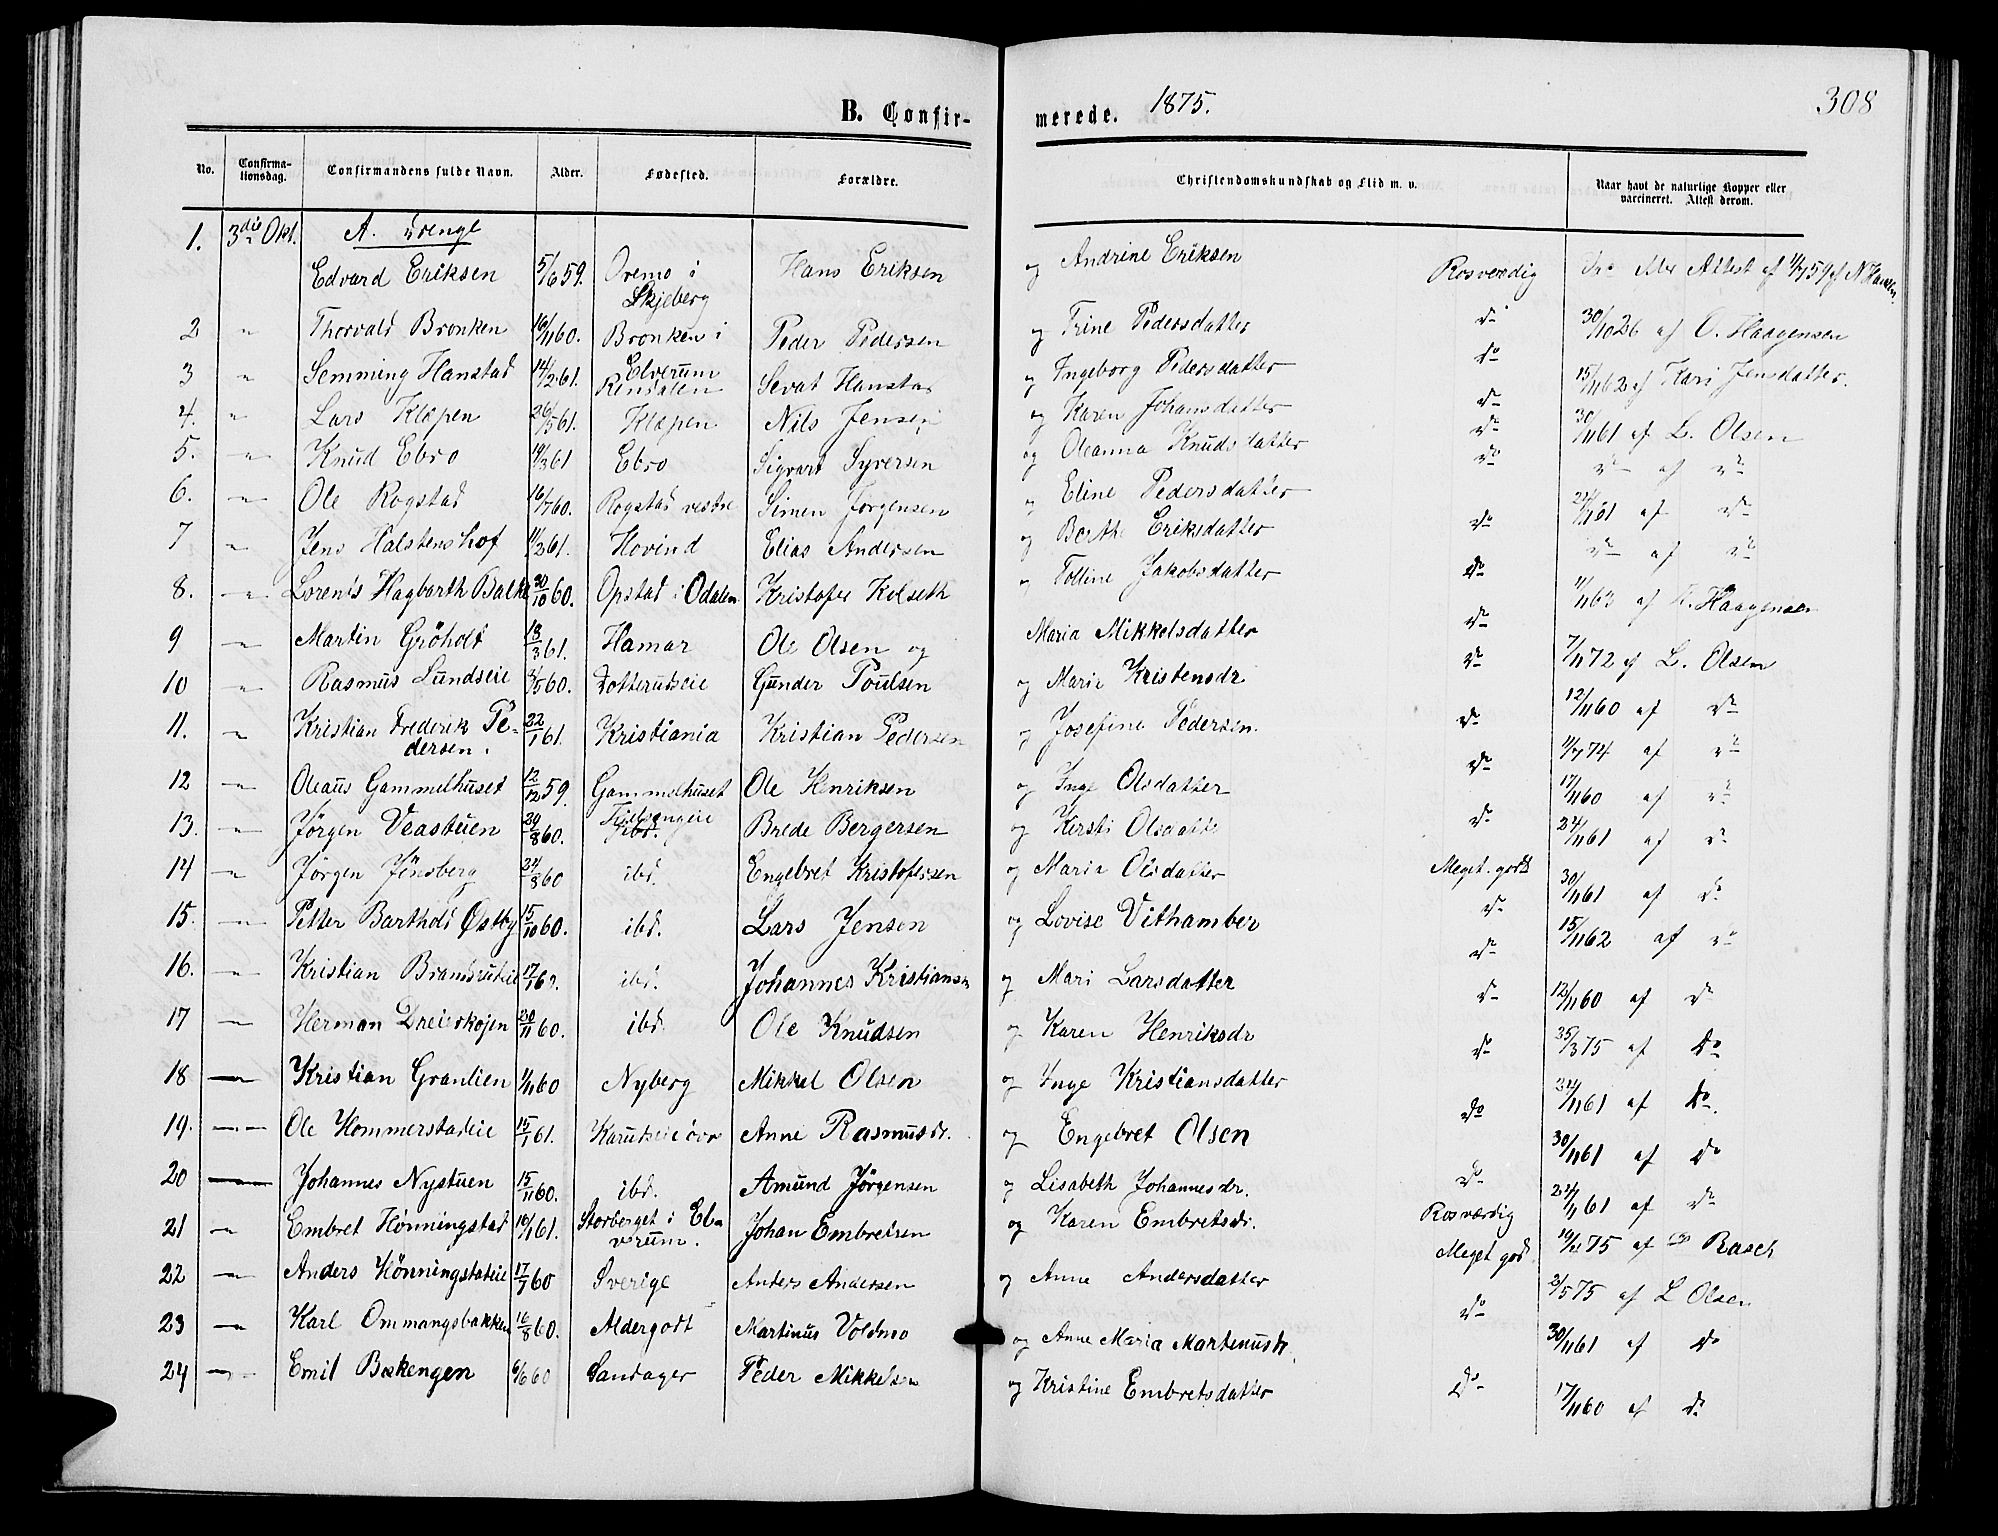 B. Confirmerede. 1875.
308
No. Confirmationsdag. Confirmandens fulde Navn. Alder. Fødested. Forældre. Christendomskundskab og Flid m. v. Naar havt de naturlige Kopper eller vaccineret. Attest derom.
1. 3die Okt. A. Drenge
Edvard Eriksen 5/6 59. i Skjeberg Hans Eriksen og Andrine Eriksen Rosværdig Attest af
2 " Thorvald Bronken 16/11 60. Bronken i Elverum Peder Pedersen og Trine Pedersdatter do 30/10 26 af O. Haagensen
3 " Semming Hanstad 14/2 61. Rendalen Sevat Hanstad og Ingeborg Pedersdatter do 15/11 62 af Kari Jensdatter.
4. " Lars Klæpen 26/5 61. Klæpen Nils Jensen og Karen Johansdatter do 30/11 61 af L. Olsen
5. " Knud Ebro 14/3 61 Ebro Sigvart Syversen og Oleanna Knudsdatter do do af do
6. " Ole Rogstad 16/7 60. Rogstad vestre Simen Jørgensen og Eline Pedersdatter do 24/11 61 af do
7 " Jens Halstenshof 11/3 61. Hovind Elias Andersen og Berthe Eriksdatter do do af do
8. " Lorents Hagbarth Balke 20/10 60. Opstad i Odalen Kristofer Kolseth og Tolline Jakobsdatter do 11/11 63 af K. Haagensen
9 " Martin Gröholt 18/3 61. Hamar Ole Olsen og Maria Mikkelsdatter do 7/11 72 af L. Olsen
10 " Rasmus Lundseie 60. Gunder Poulsen og Marie Kristensdr do 12/11 60 af do
11. " Kristian Frederik Pedersen. 22/1 61. Kristiania Kristian Pedersen og Josefine Pedersen. do 11/7 74 af do
12 " Oleaus Gammelhuset 12/12 59. Gammelhuset Ole Henriksen og Inge Olsdatter do 17/11 60 af do
13. " Jørgen Veastuen 29/8 60. ibd. Brede Bergersen og Kersti Olsdatter do 24/11 61 af do
14 " Jørgen Jönsberg 24/8 60 ibd. Engebret Kristofersen og Maria Olsdatter Meget godt 30/11 61 af do
15. " Petter Barthold Østby 15/10 60. ibd. Lars Jensen og Lovise do 15/11 62 af do
16. " Kristian ibd. Johannes Kristiansen og Mari Larsdatter do 12/11 60 af do
17 " Herman Dreierskojen 20/11 60. ibd. Ole Knudsen og Karen Henriksdr do /3 75 af do
18 " Kristian Granlien 1/11 60 Nyberg Mikkel Olsen og Inge Kristiansdatter do 24/11 61 af do
19. " Ole Hommerstadeie 15/1 61. Anne Rasmusdr. og Engebret Olsen do 30/11 61 af do
20 " Johannes Nystuen 15/11 60. ibd. Amund Jörgensen og Lisabeth Johannesdr. do 24/11 61 af do
21 " Embret Hönningstad 10/1 61. Storberget i Elverum. Johan Embretsen og Karen Embretsdr. Rosværdig 75 af Rasch
22 " Anders Hönningstadeie 17/7 60 Sverige Anders Andersen og Anne Andersdatter Meget god 2/5 75 af L Olsen
23 " Karl Ommangsbakken 16/8 60. Aldergodt Martinus Voldmo og Anne Maria Martinusdr. do 30/11 61 af do
24 " Emil Bækengen 6/6 60 Sandager Peder Mikkelsen og Kristine Embretsdatter do 17/11 60 af do